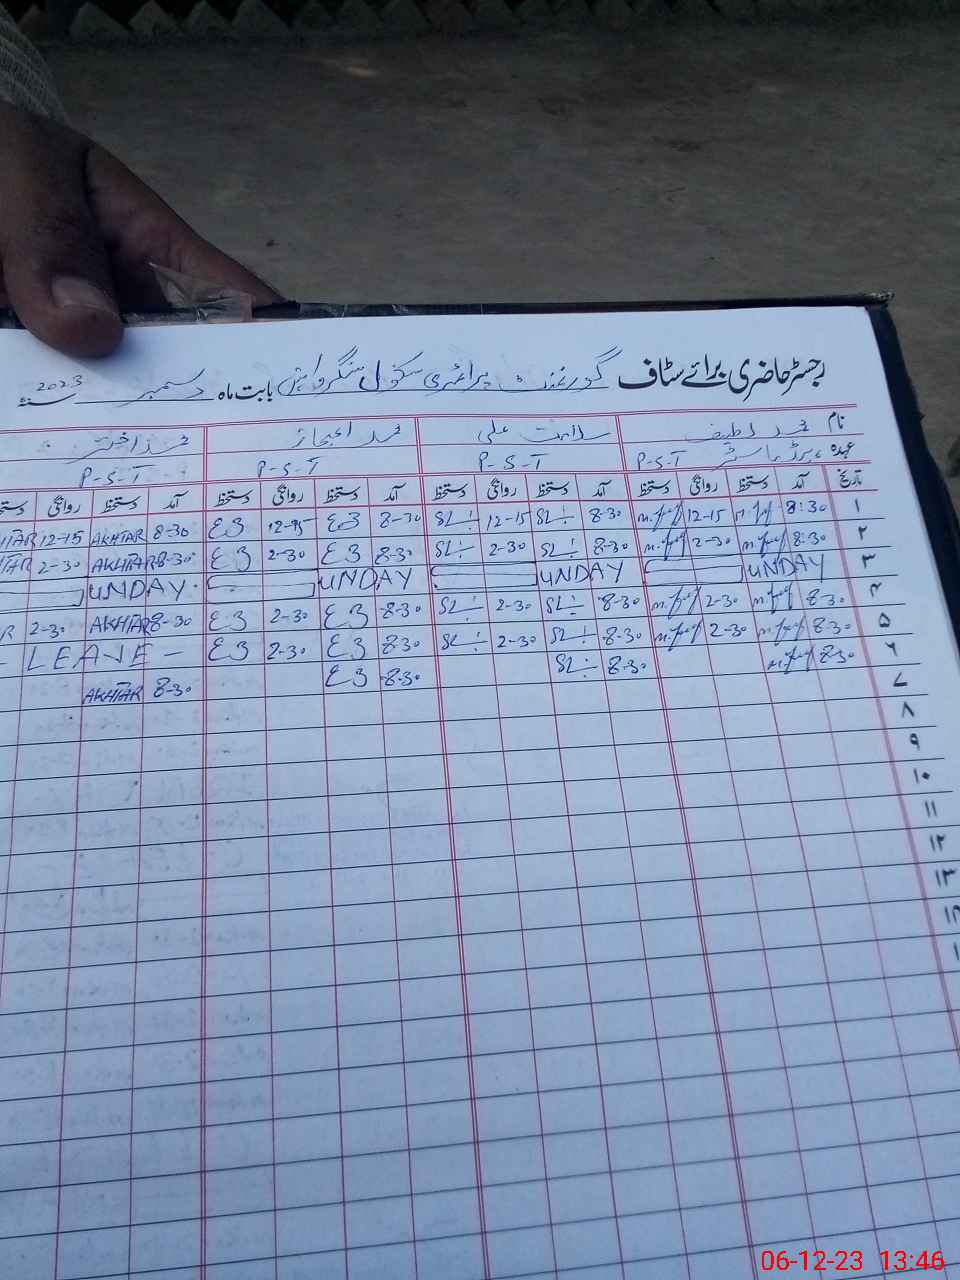 رجسٹر حاضری برائے سٹاف گورنمنٹ پرائمری سکول بابت ماہ دسمبر 2023
نام محمد لطیف سلامت علی محمد اعجاز محمد اختر
عہدہ ہیڈ ماسٹر P-S-T P-S-T P-S-T P-S-T
تاریخ آمد دستخط روانگی دستخط آمد دستخط روانگی دستخط آمد دستخط روانگی دستخط آمد دستخط روانگی دستخط
۱ 8:30 12-15 8-30 12-15 8-30 12-15 8-30 AKHTAR 12-15
۲ 8:30 2-30 8-30 2-30 8-30 2-30 8-30 AKHTAR 2-30
۳ SUNDAY SUNDAY SUNDAY SUNDAY
۴ 8-30 2-30 8-30 2-30 8-30 2-30 8-30 AKHTAR 2-30
۵ 8-30 2-30 8-30 2-30 8-30 2-30 - LEAVE -
۶ 8-30 8-30 8-30 8-30 AKHTAR
۷
۸
۹
۱۰
۱۱
۱۲
۱۳
۱۴
06-12-23 13:46